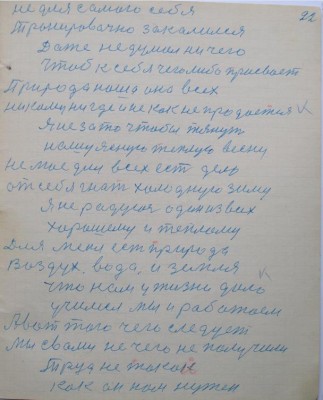 22
не для самого себя
Тренировачно закалился
Даже не думал ничего
Чтоб к себя чего либо присваёт
Природа наша она всех
никому ни где и не как не продаётся
Я не за то чтобы тянут
нашу ясную теплую весну
не мое для всех ест дело
от себя гнат холодную зиму
Я не радуюс один из всех
хорошему и теплому
Для меня ест природа
воздух, вода, и земля
что нам у жизни дало
учимся мы и работаем
А вот того чего следует
Мы с вами не чего не получили
Труд не такой
как он нам нужен